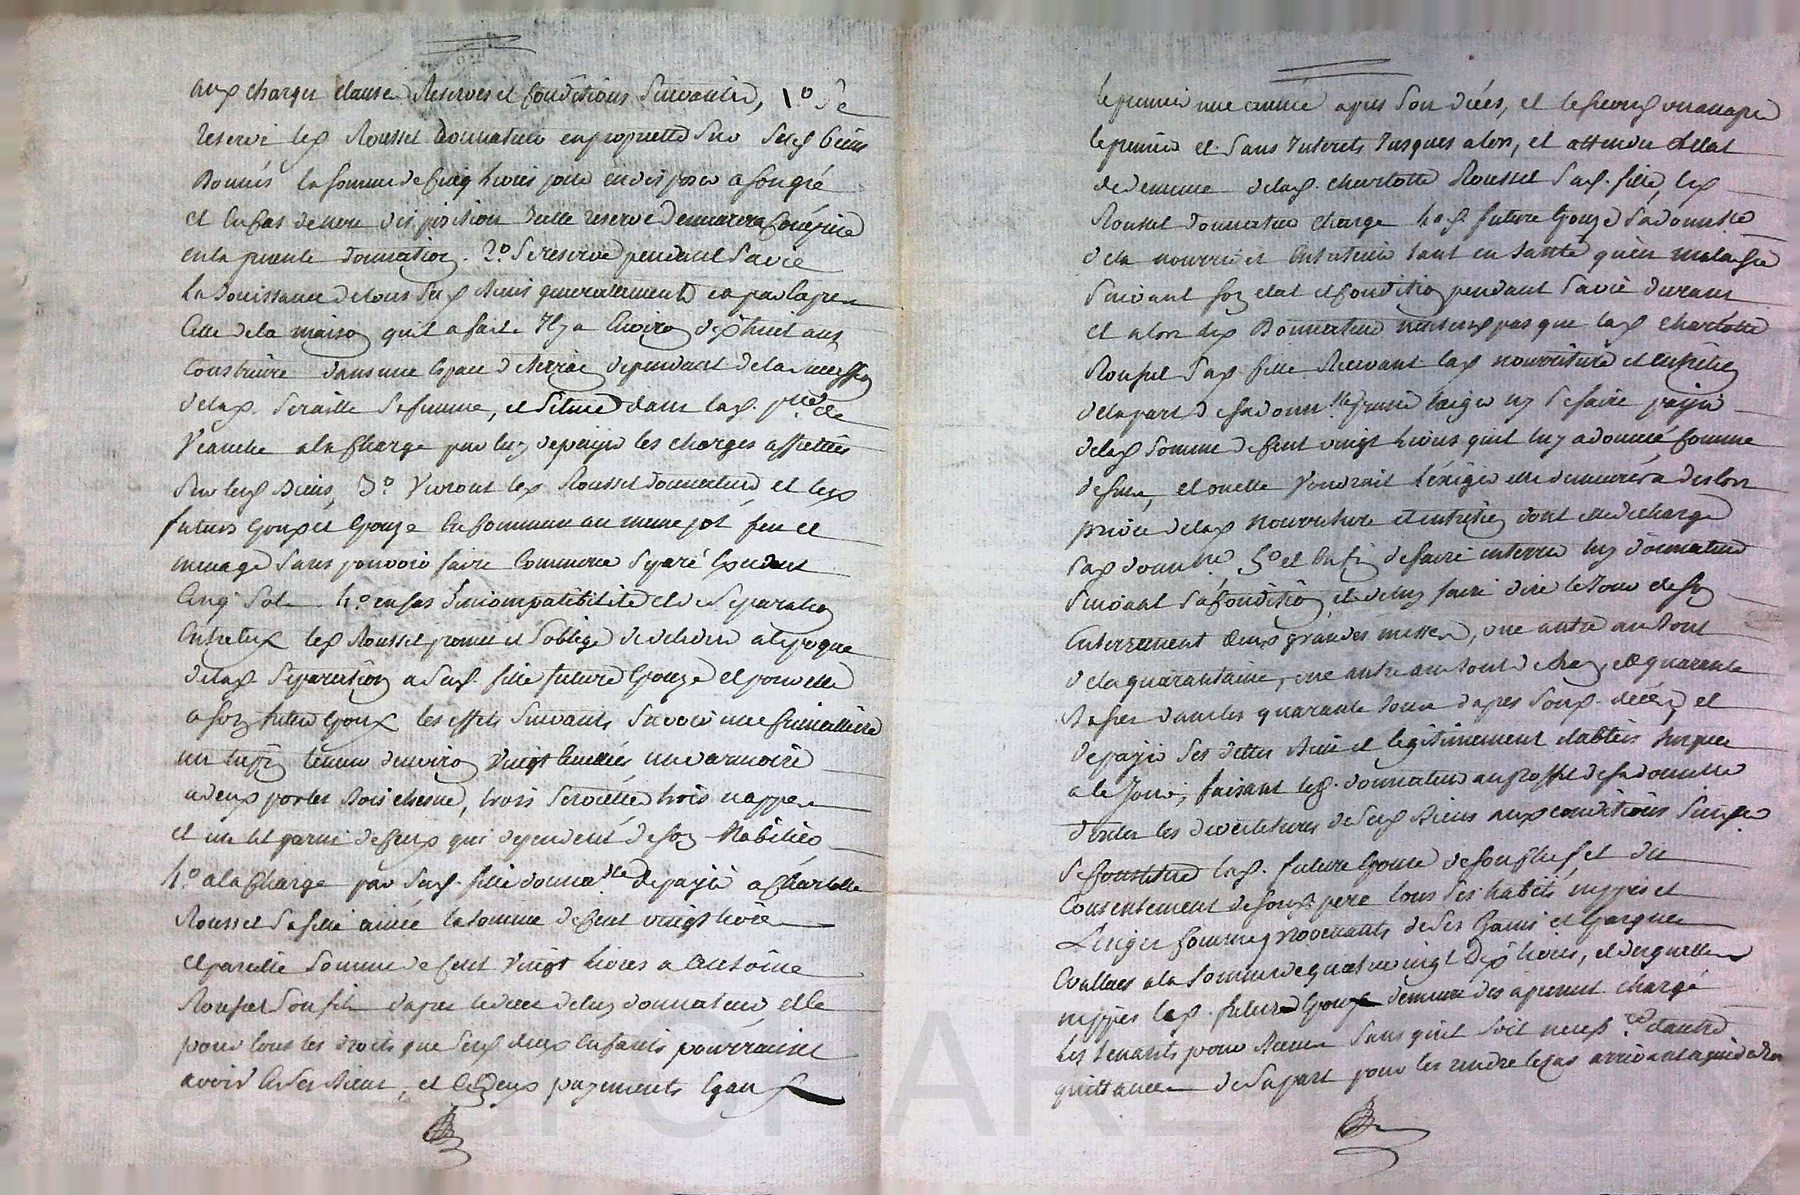 aux charges clauses Reserves et Conditions Suivantes, 1.º Se
reserve led. Roussel Donnateur en proprietté Sur Sesd. biens
Donnés la Somme de Cinq livres pour en disposer a Son gré
et En Cas de non disposition Cette reserve Demeurera Comprise
en la presente Donnation. 2.º Se reserve pendant Sa vie
la Jouissance de tous Sesd. biens generalement
Celle de la maison quil a fait Il y a Environ dixhuit ans
Construire dans une Espace de terrein dependant de la
de lad. Seraille Sa femme, et Située dans lad. p.sse de
a la Charge par luy de payer les charges affectées
Sur lesd. biens, 3.º Vivront led. Roussel Donnateur et lesd.
futurs Epoux et Epouze En Commun au meme pot feu et
menage Sans pouvoir faire Commerce Separé Excedant
Cinq Sols. 4.º en Cas d'incompatibilité et de Separation
Entre Eux led. Roussel promet et S'oblige de delivrer a l'epoque
de lad. Separation a Sad. fille future Epouze et pour elle
a Son futur Epoux les effets Suivants Savoir une Cremaillere
un tenant d'environ Vingt une armoire
a deux portes bois chesne, trois Serviettes trois nappes
et un lit garni de Ceux qui dependent de Son Mobilier
4.º a la Charge par Sad. fille donna.re de payer a Charlotte
Roussel Sa fille ainée la Somme de Cent vingt livres
et pareille Somme de Cent Vingt livres a Antoine
Roussel Son fils d'apres le deces de luy donnateur et le
pour tous les droits que Sesd. deux Enfants pourraient
avoir En Ses biens, et Esd. deux payements Egaux
le premier une année apres Son dèces, et le Second un an apres
le premier et Sans Interets Jusques alors, et attendu l'Etat
de demence de lad. Charlotte Roussel Sad. fille, led.
Roussel Donnateur Charge lad. future Epouze Sa donnat.re
de la nourrir et Entretenir tant en Santé qu'en maladie
Suivant Son etat et Condition pendant Sa vie durant
et alors led. Donnateur n'entend pas que lad. Charlotte
Roussel Sad. fille Recevant lad. nourriture et Entretien
de la part de Sa donn.re puisse Exiger ny Se faire payer
de lad. Somme de Cent vingt livres quil luy a donné Comme
dessus, et ou elle Voudrait L'exiger elle demeurera des lors
privée de lad. nourriture et entretien dont elle decharge
Sad. donn.re 5.º et Enfin de faire interrer luy donnateur
Suivant Sa Condition et de luy faire dire le Jour de Son
Enterrement deux grandes messes, une autre au bout
de la quarantaine, une autre au bout de l'an, et quarante
basses dans les quarante Jours d'apres Sond. décès, et
de payer Ses dettes bien et legitimement etablies Jusques
a ce Jour, faisant led. donnateur au profit de Sa donnat.re
toutes les devetitures de Sesd. biens aux conditions Susd.
Se Constitue lad. future Epouze de Son Chef et du
Consentement de Sond. pere tous Ses habits nippes et
Linges Comme provenants de Ses Gains et Epargnes
Evalués a la Somme de quatre vingt Dix livres, et desquelles
nippes led. futur Epoux demeure des a present chargé
les tenants pour Reçues Sans quil Soit necess.re d'autre
quittances de Sa part pour les rendre le Cas arrivant a qui de droit